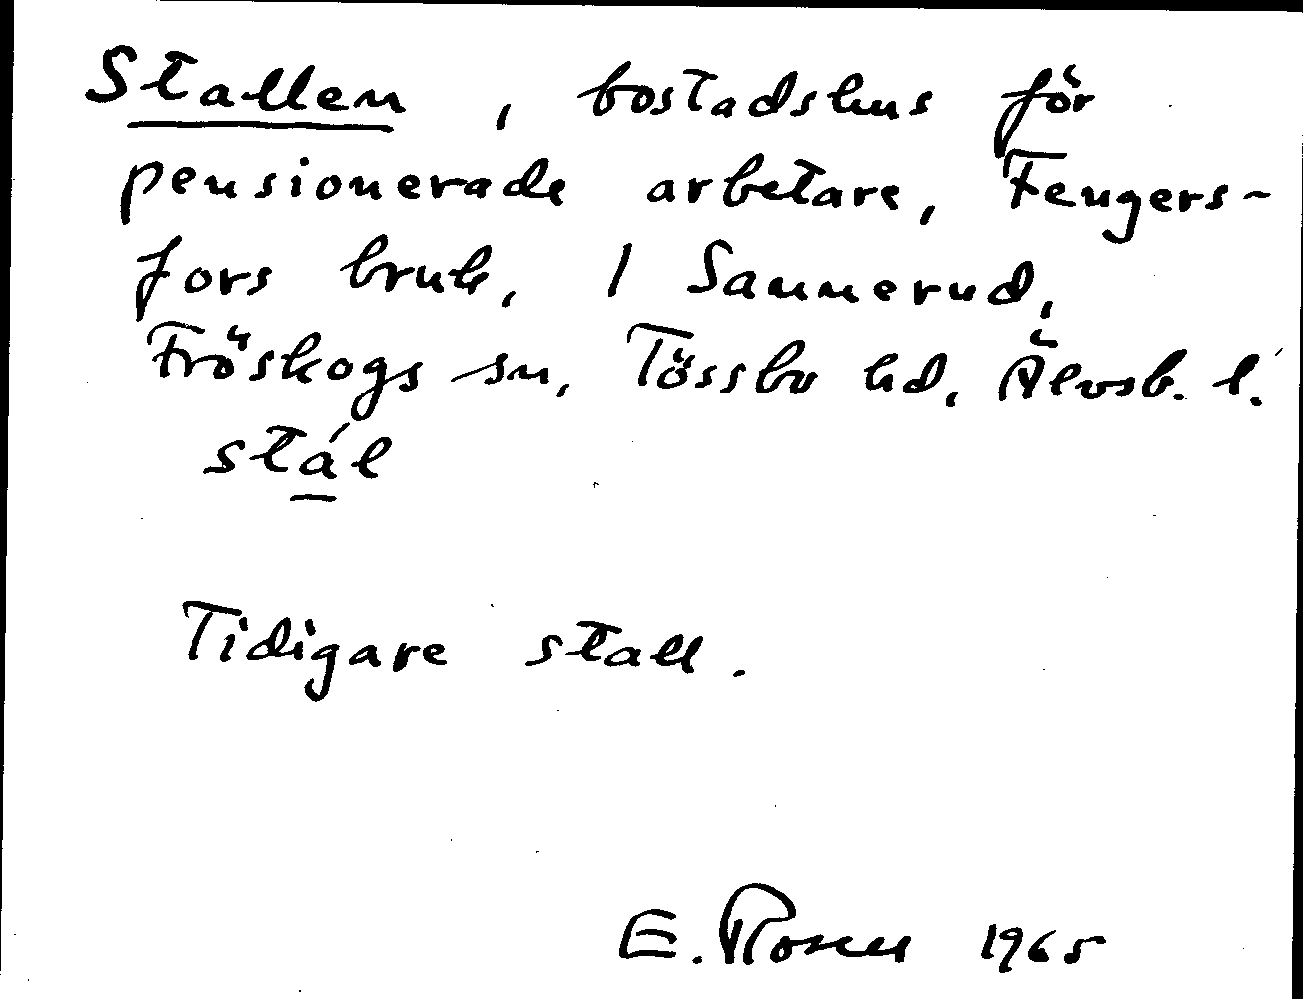 Stallen, bostadshus för
pensionerade arbetare, Fengers-
fors bruk, 1 Sannerud,
Fröskogs sn, Tössbo hd, Älvsb. l.
stál
Tidigare stall.
E. Rosell 1965